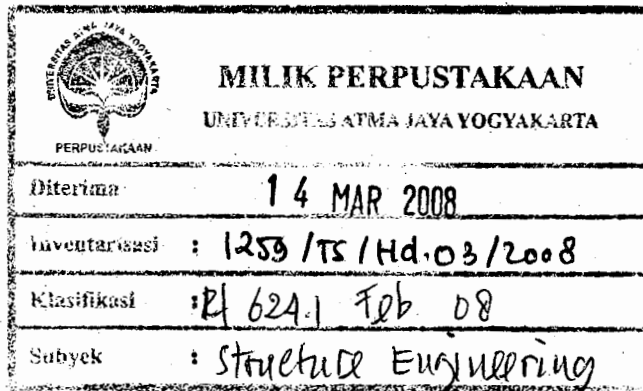 UNIVERSITAS ATMA JAYA YOGYAKARTA
PERPUSTAKAAN
MILIK PERPUSTAKAAN
UNIVERSITAS ATMA JAYA YOGYAKARTA
Diterima 14 MAR 2008
Inventarisasi : 1259 / TS / Hd.03 / 2008
Klasifikasi : Rf 624.1 Feb 08
Subyek : Structure Engineering